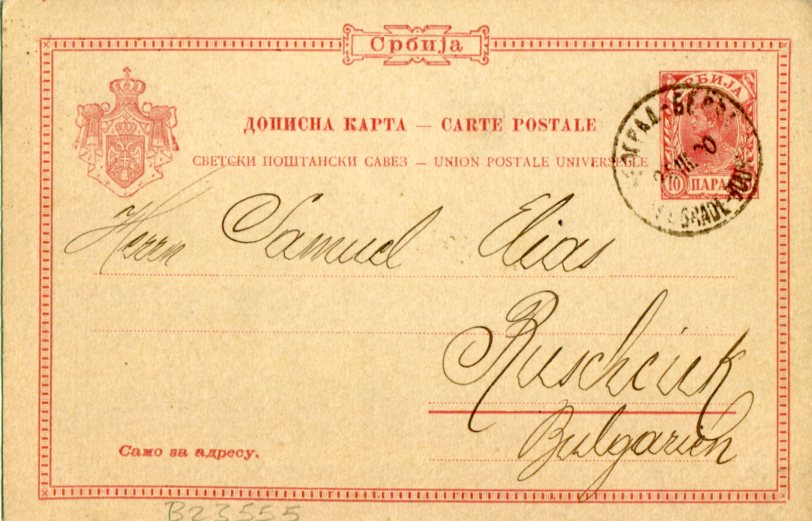 Србија
СРБИЈА
ДОПИСНА КАРТА — CARTE POSTALE
СВЕТСКИ ПОШТАНСКИ САВЕЗ — UNION POSTALE UNIVERSELLE
10 ПАРА
Herrn Samuel Elias
Ruschcuk
Bulgarien
Само за адресу.
B23555